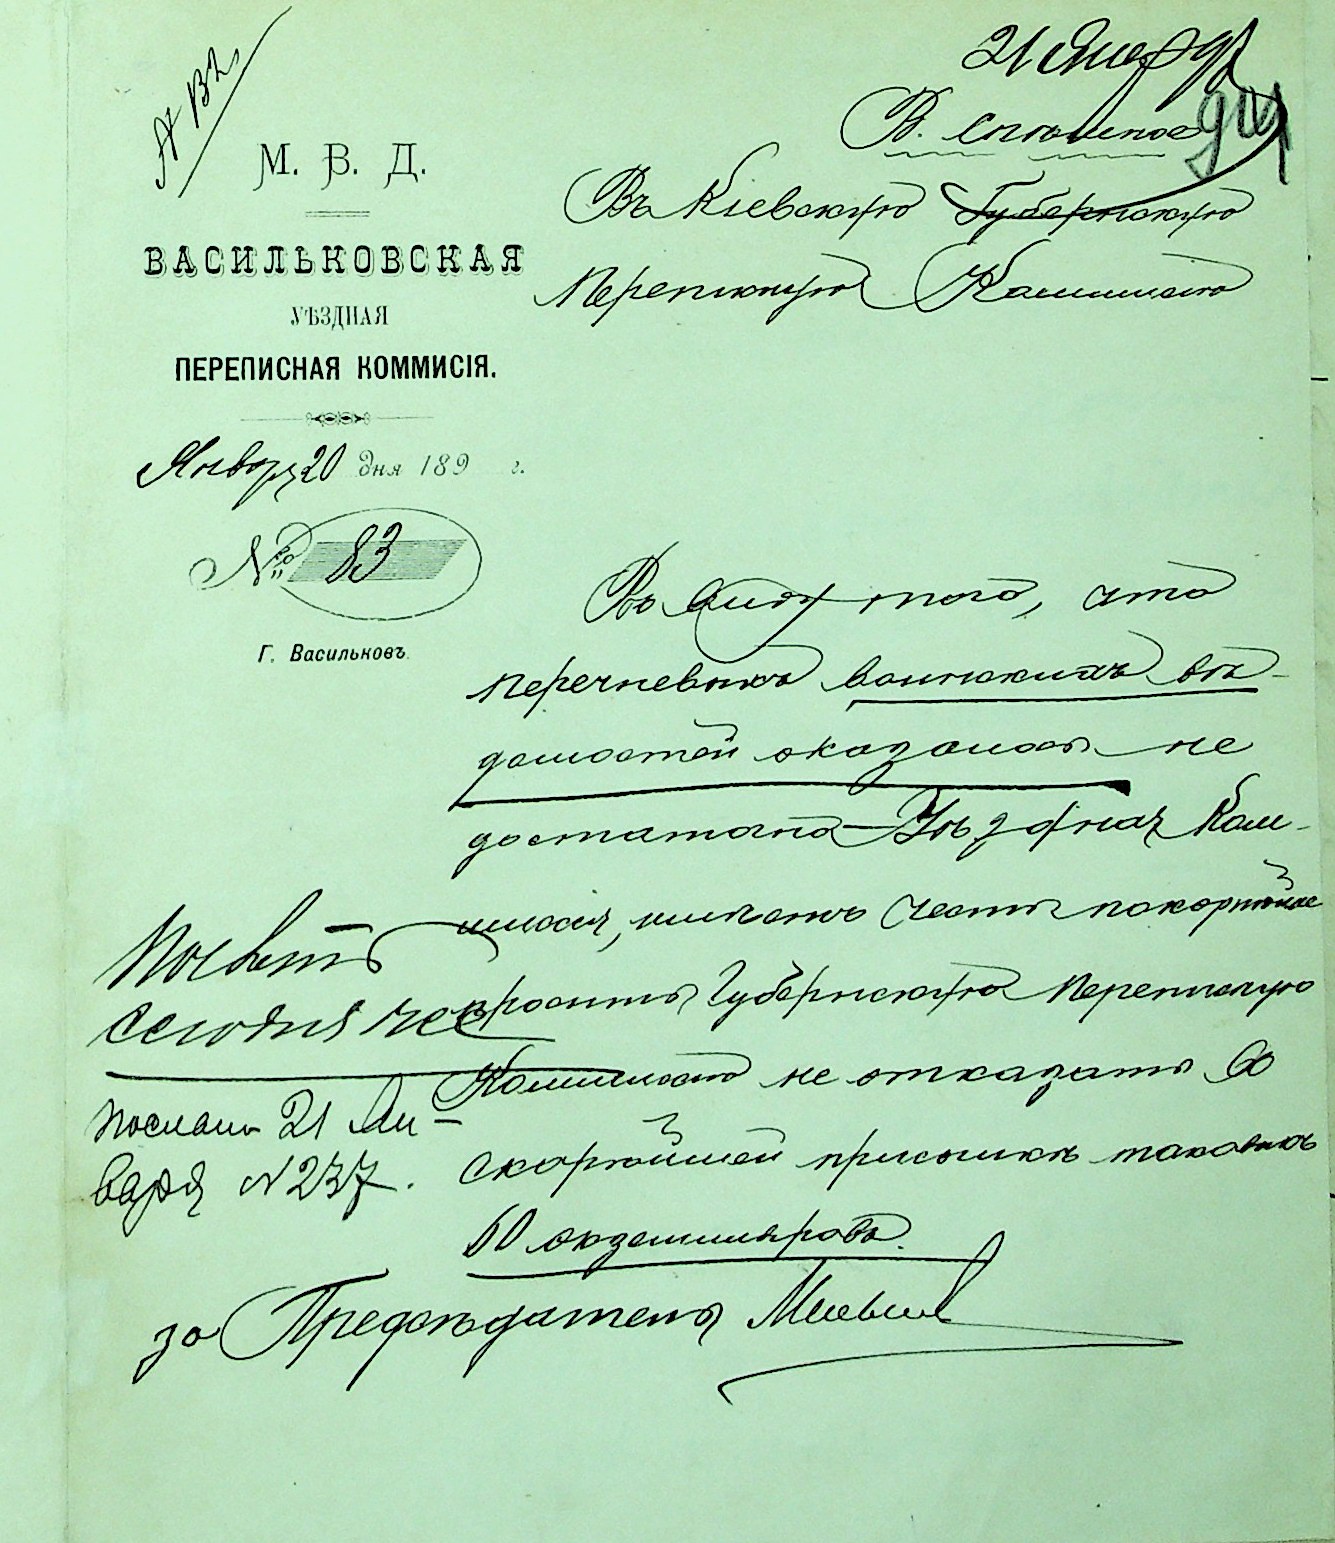 21 Января
В. спешное
М. В. Д.
ВАСИЛЬКОВСКАЯ
УѢЗДНАЯ
ПЕРЕПИСНАЯ КОММИСІЯ.
Января 20 дня 189 г.
№ 83
Г. Васильковъ.
Въ Кіевскую Губернскую
Переписную Коммисію
Въ виду того, что
перечневыхъ воинскихъ вѣ-
домостей оказалось не
достаточно Уѣздная Ком-
мисія, имѣетъ честь покорнѣйше
просить Губернскую Переписную
Коммисію не отказать въ
скорѣйшей присылкѣ таковыхъ
50 экземпляровъ.
за Предсѣдателя
сегодня же
Послано 21 Ян-
варя № 237.